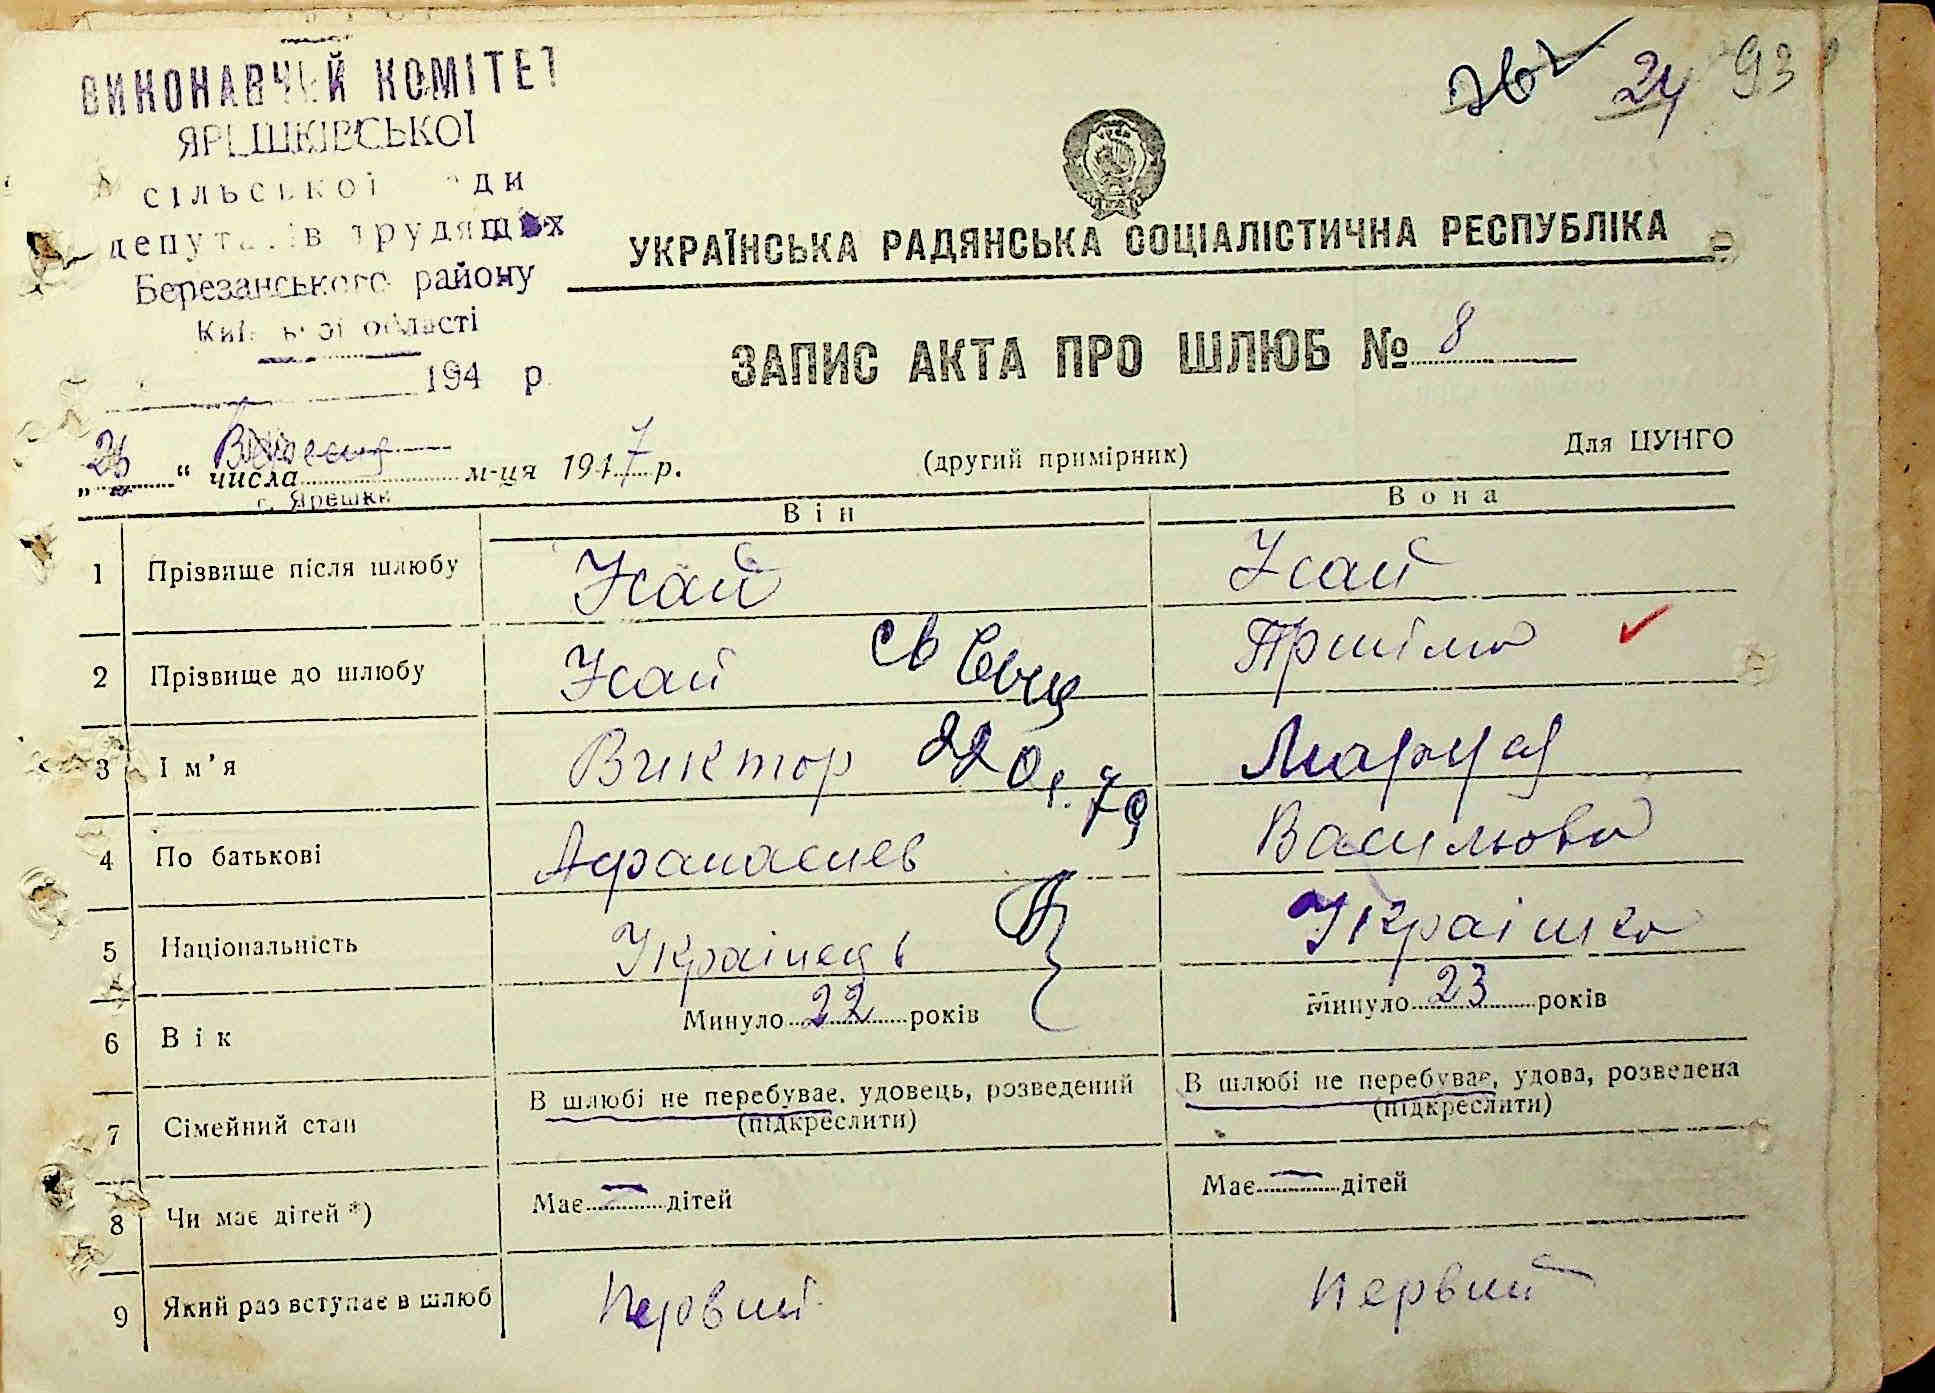 ВИКОНАВЧИЙ КОМІТЕТ
ЯРЕШКІВСЬКОЇ
сільської ради
депутатів трудящих
Березанського району
Київської області
194 р.
24 93
УКРАЇНСЬКА РАДЯНСЬКА СОЦІАЛІСТИЧНА РЕСПУБЛІКА
ЗАПИС АКТА ПРО ШЛЮБ № 8
„26“ числа Вересня м-ця 1947 р.
(другий примірник)
Для ЦУНГО
с. Ярешки
Він Вона
1 Прізвище після шлюбу Усай Усай
2 Прізвище до шлюбу Усай Прийма
3 Ім’я Виктор Маруся
4 По батькові Афанасиев Васильова
5 Національність Українець Українка
6 Вік Минуло 22 років Минуло 23 років
7 Сімейний стан В шлюбі не перебуває, удовець, розведений В шлюбі не перебуває, удова, розведена
(підкреслити) (підкреслити)
8 Чи має дітей *) Має — дітей Має — дітей
9 Який раз вступає в шлюб Первий Первий